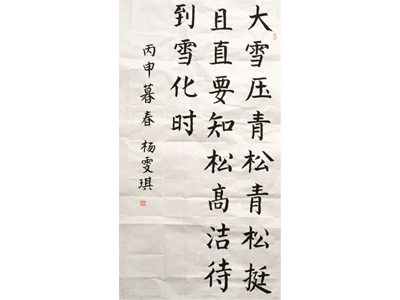 大雪压青松青松挺
且直要知松高洁待
到雪化时
丙申暮春 杨雯琪